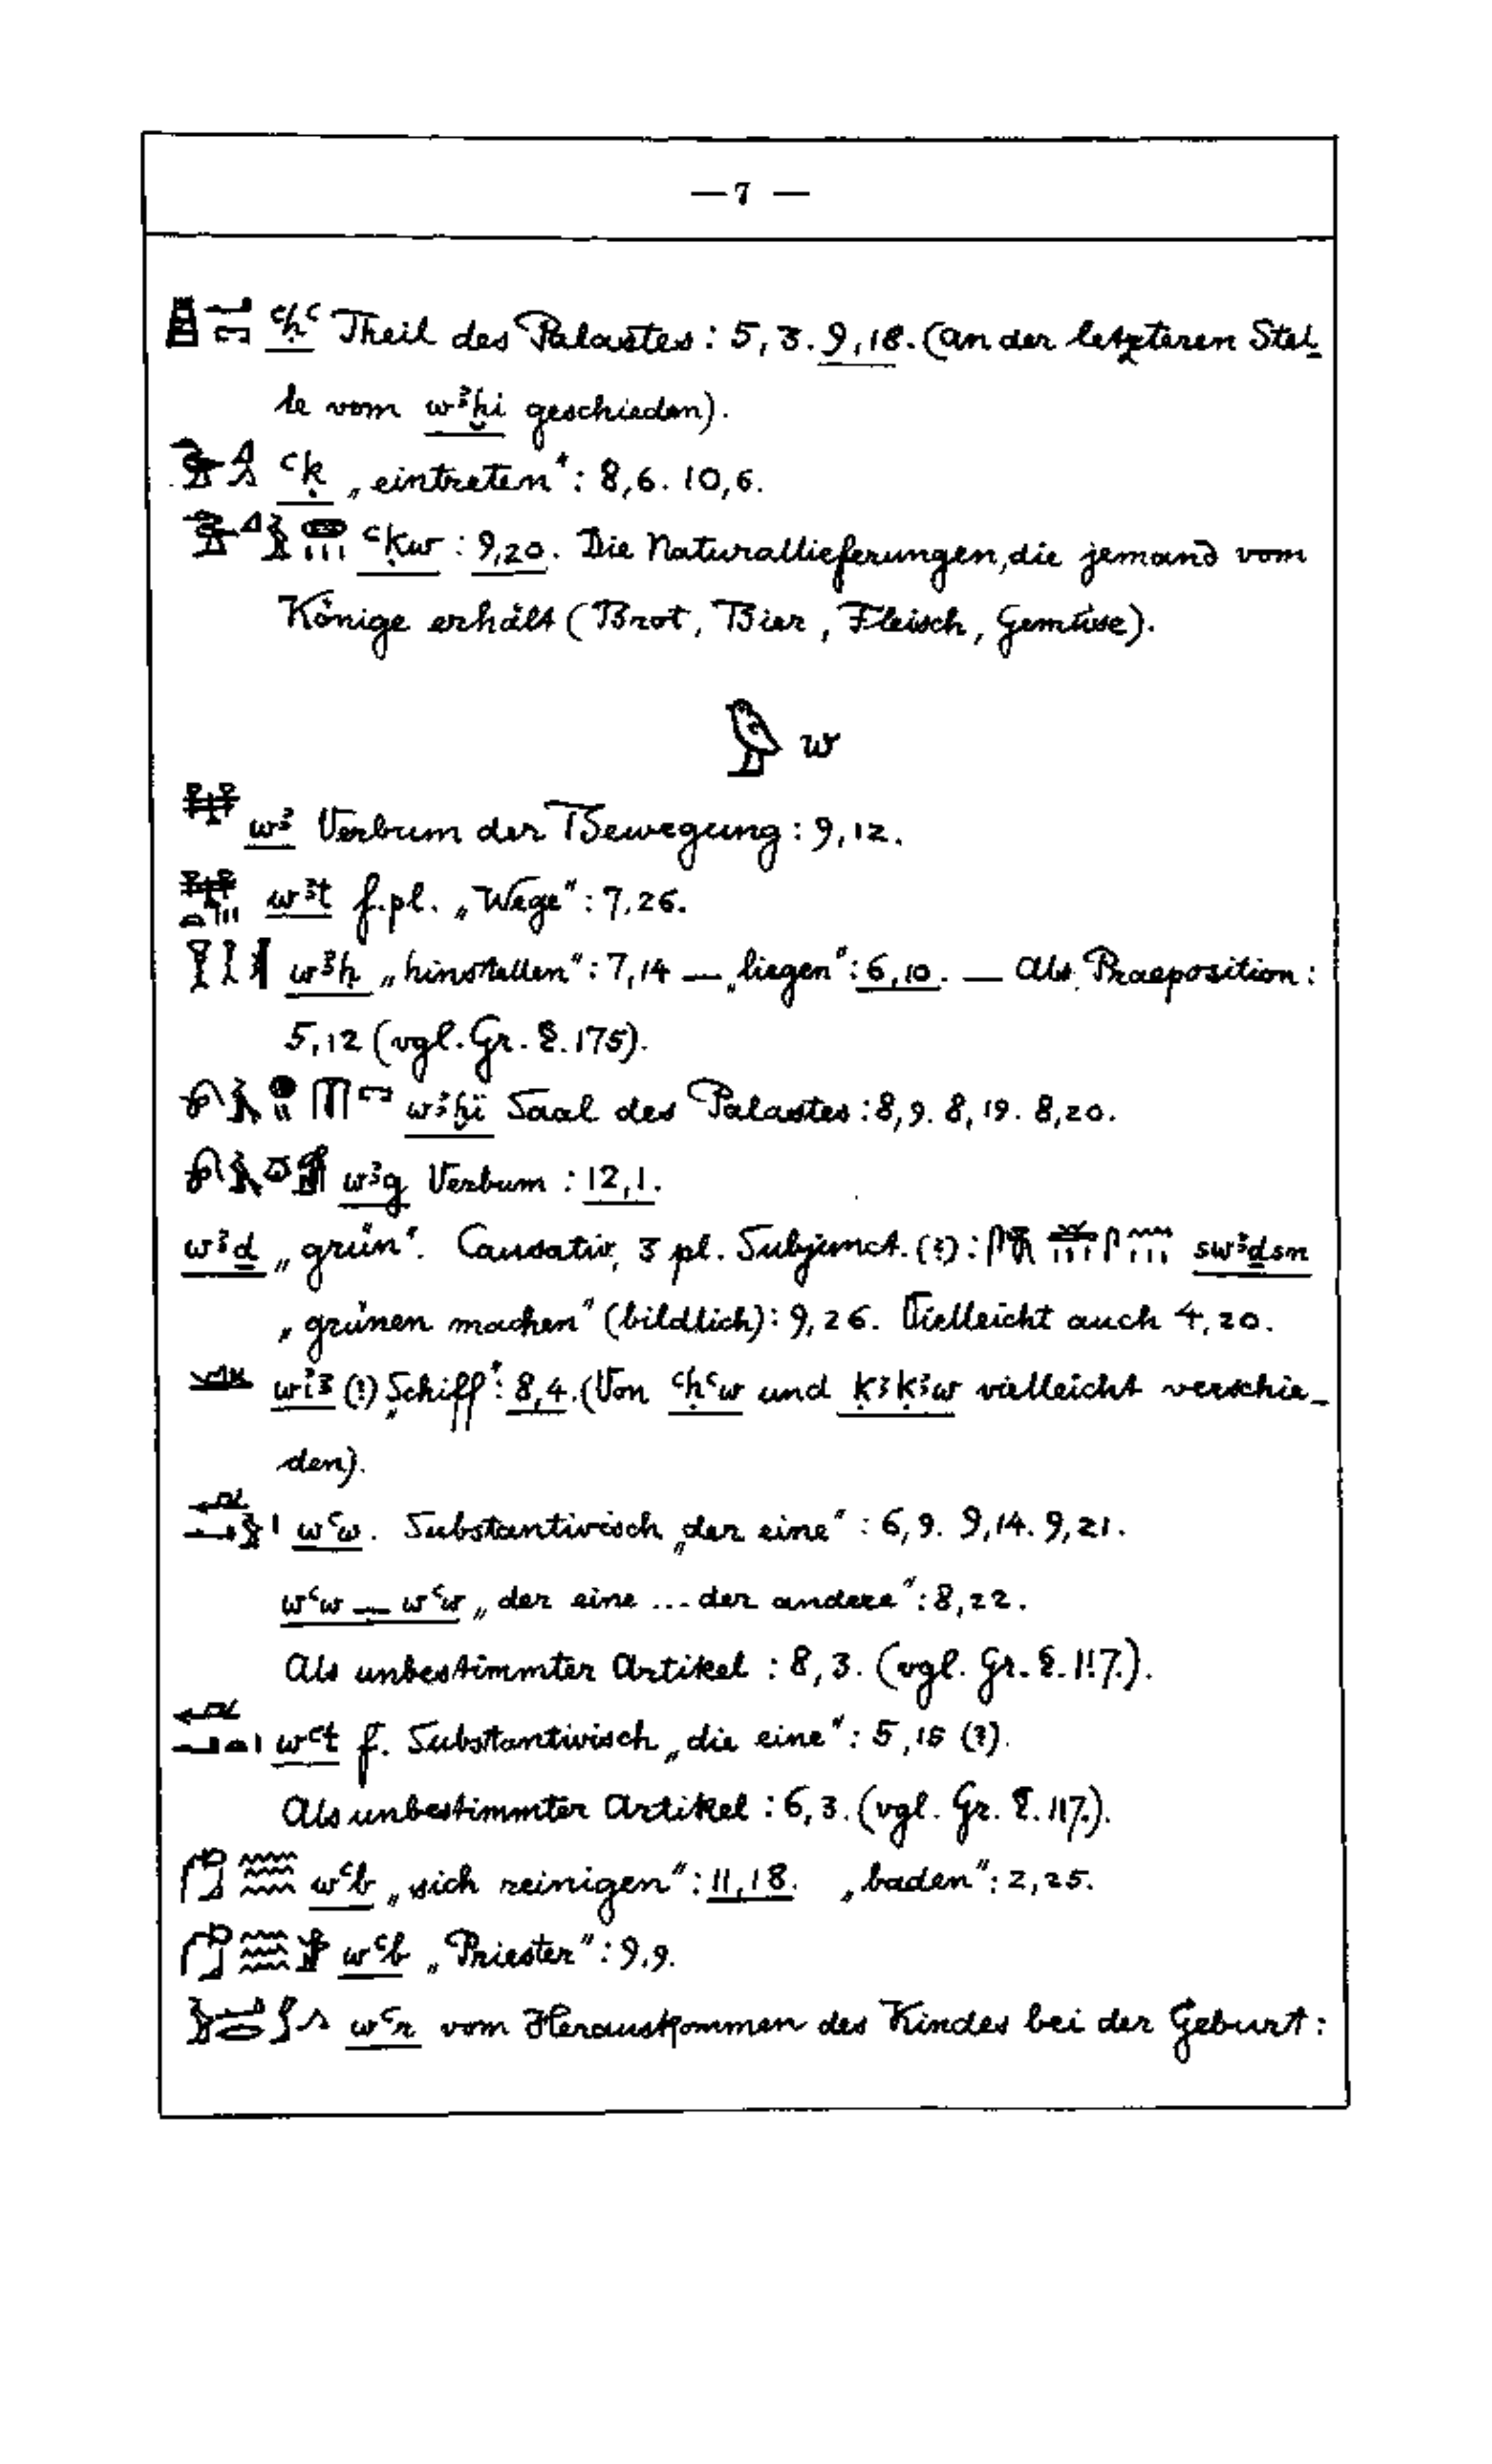 — 7 —
ꜥḥꜥ Theil des Palastes: 5,3. 9,18. (an der letzteren Stel-
le vom wꜣḫi geschieden).
ꜥḳ „eintreten“: 8,6. 10,6.
ꜥḳw: 9,20. Die Naturallieferungen, die jemand vom
Könige erhält (Brot, Bier, Fleisch, Gemüse).
𓅱 w
wꜣ Verbum der Bewegung: 9,12.
wꜣt f.pl. „Wege“: 7,26.
wꜣḥ „hinstellen“: 7,14 — „liegen“: 6,10. — Als Praeposition:
5,12 (vgl. Gr. §. 175).
wꜣḫï Saal des Palastes: 8,9. 8,19. 8,20.
wꜣg Verbum: 12,1.
wꜣḏ „grün“. Causativ, 3 pl. Subjunct. (?): swꜣḏsn
„grünen machen“ (bildlich): 9,26. Vielleicht auch 4,20.
wiꜣ (?) „Schiff“: 8,4. (Von ꜥḥꜥw und ḳꜣḳꜣw vielleicht verschie-
den).
wꜥw. Substantivisch „der eine“: 6,9. 9,14. 9,21.
wꜥw — wꜥw „der eine ... der andere“: 8,22.
Als unbestimmter Artikel: 8,3. (vgl. Gr. §. 117.).
wꜥt f. Substantivisch „die eine“: 5,15 (?).
Als unbestimmter Artikel: 6,3. (vgl. Gr. §. 117.).
wꜥb „sich reinigen“: 11,18. „baden“: 2,25.
wꜥb „Priester“: 9,9.
wꜥr vom Herauskommen des Kindes bei der Geburt: